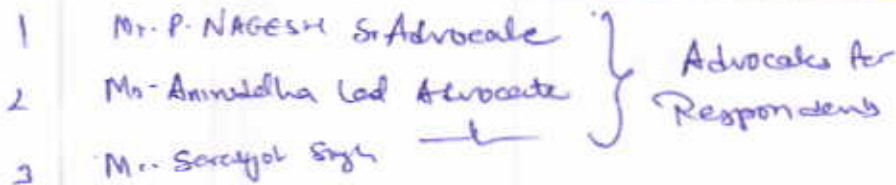 1 Mr. P. NAGESH Sr Advocate
2 Mr. Aniruddha Lad Advocate
3 Mr. Singh
Advocates for
Respondents